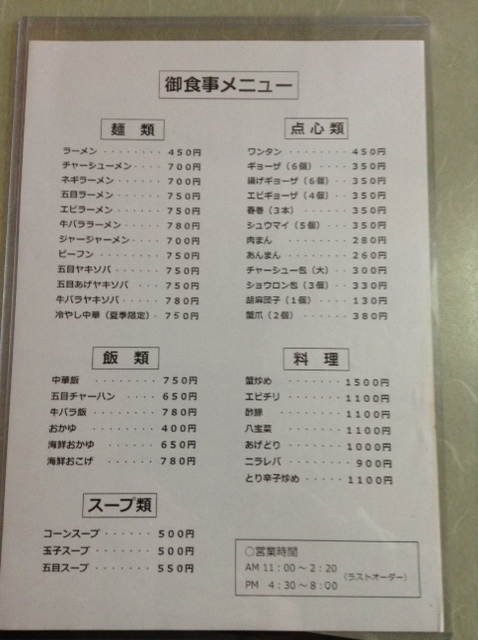 御食事メニュー
麺 類
ラーメン ・・・・・・・・ 450円
チャーシューメン・・・・ 700円
ネギラーメン・・・・・・ 700円
五目ラーメン・・・・・・ 750円
エビラーメン・・・・・・ 750円
牛バララーメン・・・・・ 780円
ジャージャーメン・・・・ 700円
ビーフン ・・・・・・・ 750円
五目ヤキソバ・・・・・・ 750円
五目あげヤキソバ ・・・ 750円
牛バラヤキソバ・・・・・ 780円
冷やし中華（夏季限定）・ 750円
飯 類
中華飯 ・・・・・・・・ 750円
五目チャーハン ・・・・ 650円
牛バラ飯 ・・・・・・・ 780円
おかゆ ・・・・・・・・ 400円
海鮮おかゆ ・・・・・・ 650円
海鮮おこげ ・・・・・・ 780円
スープ類
コーンスープ ・・・・・ 500円
玉子スープ ・・・・・・ 500円
五目スープ ・・・・・・ 550円
点 心 類
ワンタン ・・・・・・・・ 450円
ギョーザ（6個）・・・・ 350円
揚げギョーザ（6個）・・ 350円
エビギョーザ（4個）・・ 350円
春巻（3本）・・・・・・ 350円
シュウマイ（5個）・・・ 350円
肉まん ・・・・・・・・ 280円
あんまん ・・・・・・・ 260円
チャーシュー包（大）・・ 300円
ショウロン包（3個）・・ 330円
胡麻団子（1個）・・・・ 130円
蟹爪（2個）・・・・・・ 380円
料 理
蟹炒め ・・・・・・・ 1500円
エビチリ ・・・・・・ 1100円
酢豚 ・・・・・・・・ 1100円
八宝菜 ・・・・・・・ 1100円
あげどり ・・・・・・ 1000円
ニラレバ ・・・・・・・ 900円
とり辛子炒め・・・・・ 1100円
○営業時間
AM 11：00～2：20
（ラストオーダー）
PM 4：30～8：00